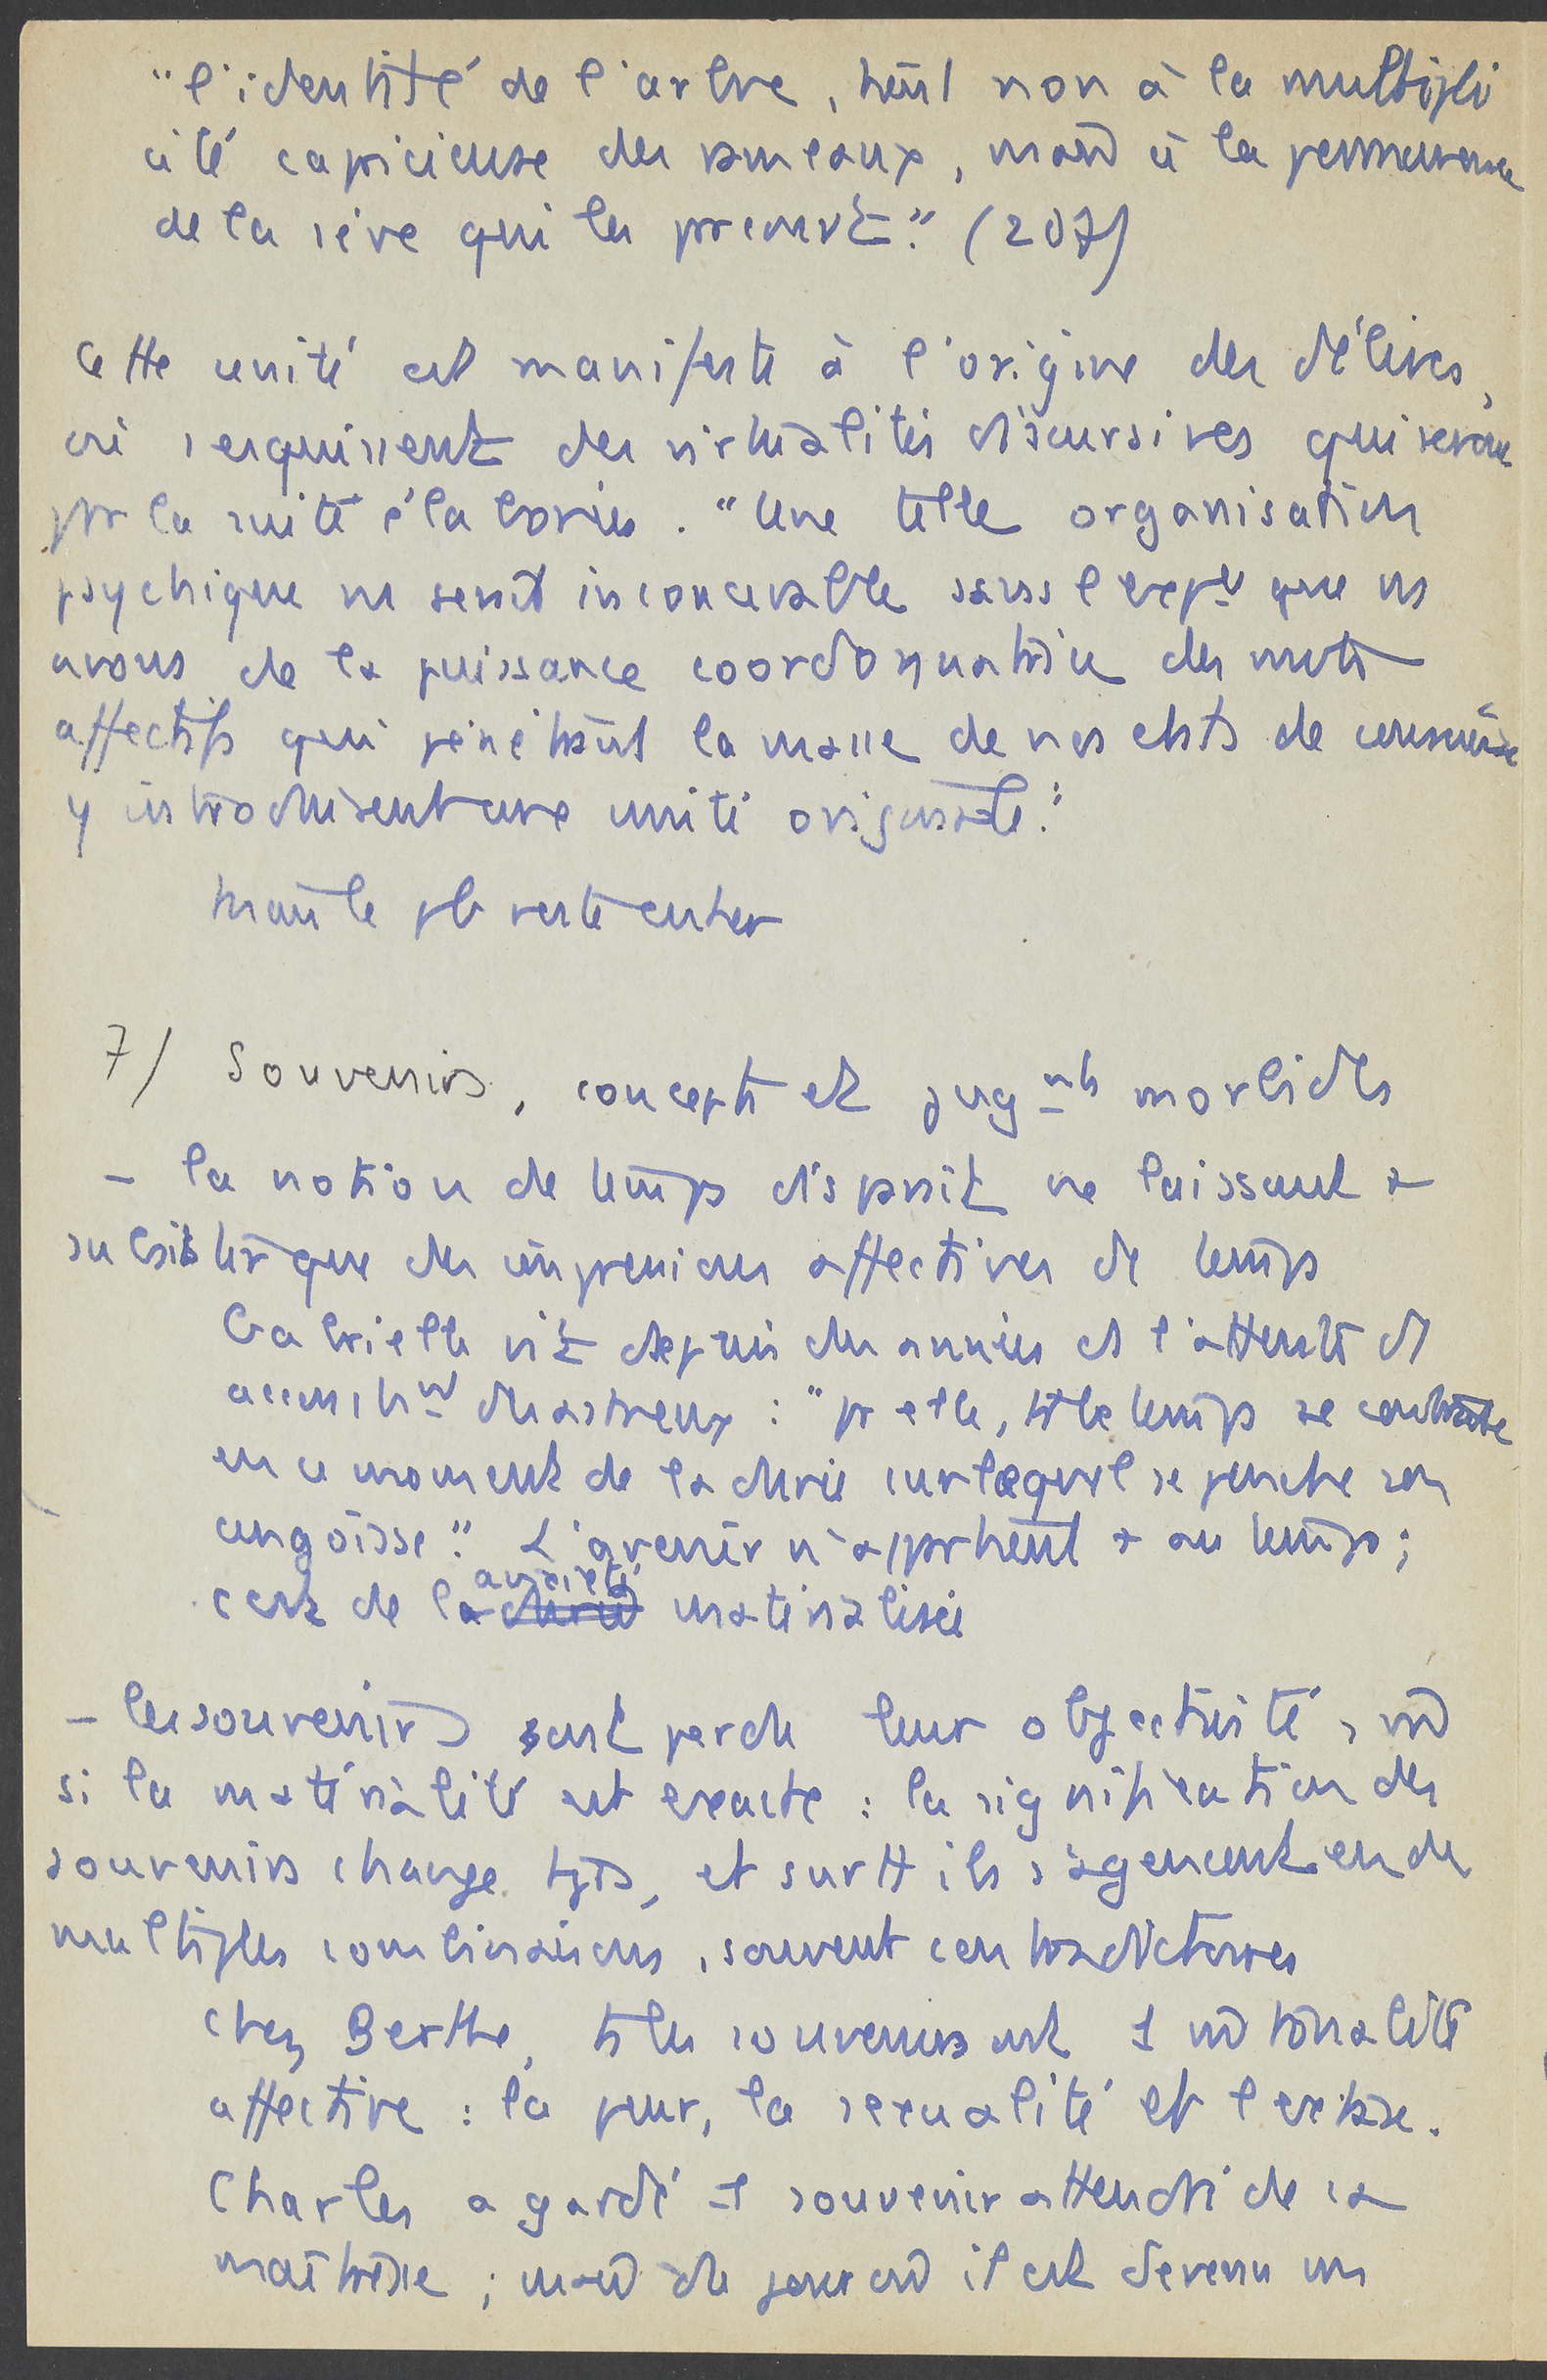 "l'identité de l'arbre, tient non à la multipli
cité capricieuse des rameaux, mais à la permanence
de la sève qui les parcourt." (207)
Cette unité est manifeste à l'origine des délires,
où s'esquissent des virtualités discursives qui seront
par la suite élaborées. "Une telle organisation
psychique ns serait inconcevable sans l'expce que ns
avons de la puissance coordonnatrice des mots
affectifs qui pénétrant la masse de nos états de conscience
y introduisent une unité originale."
mais le pb reste entier
7/ Souvenirs, concepts et jugmts morbides
- la notion de temps disparaît ne laissant
subsister que des impressions affectives de temps
Gabrielle vit depuis des années ds l'attente d'
accouchmt désastreux : "pr elle, tt le temps se contracte
en ce moment de la durée sur lequel se penche son
angoisse." L'avenir n'appartient + au temps ;
c'est de l'anxiété matérialisée
- les souvenirs ont perdu leur objectivité, md
si la matérialité est exacte : la signification des
souvenirs change tjrs, et surtt ils s'agencent en de
multiples combinaisons, souvent contradictoires
chez Berthe, ts les souvenirs ont 1 md tonalité
affective : la peur, la sexualité et l'extase.
Charles a gardé 1 souvenir attendri de sa
maîtresse ; mais du jour où il est devenu un